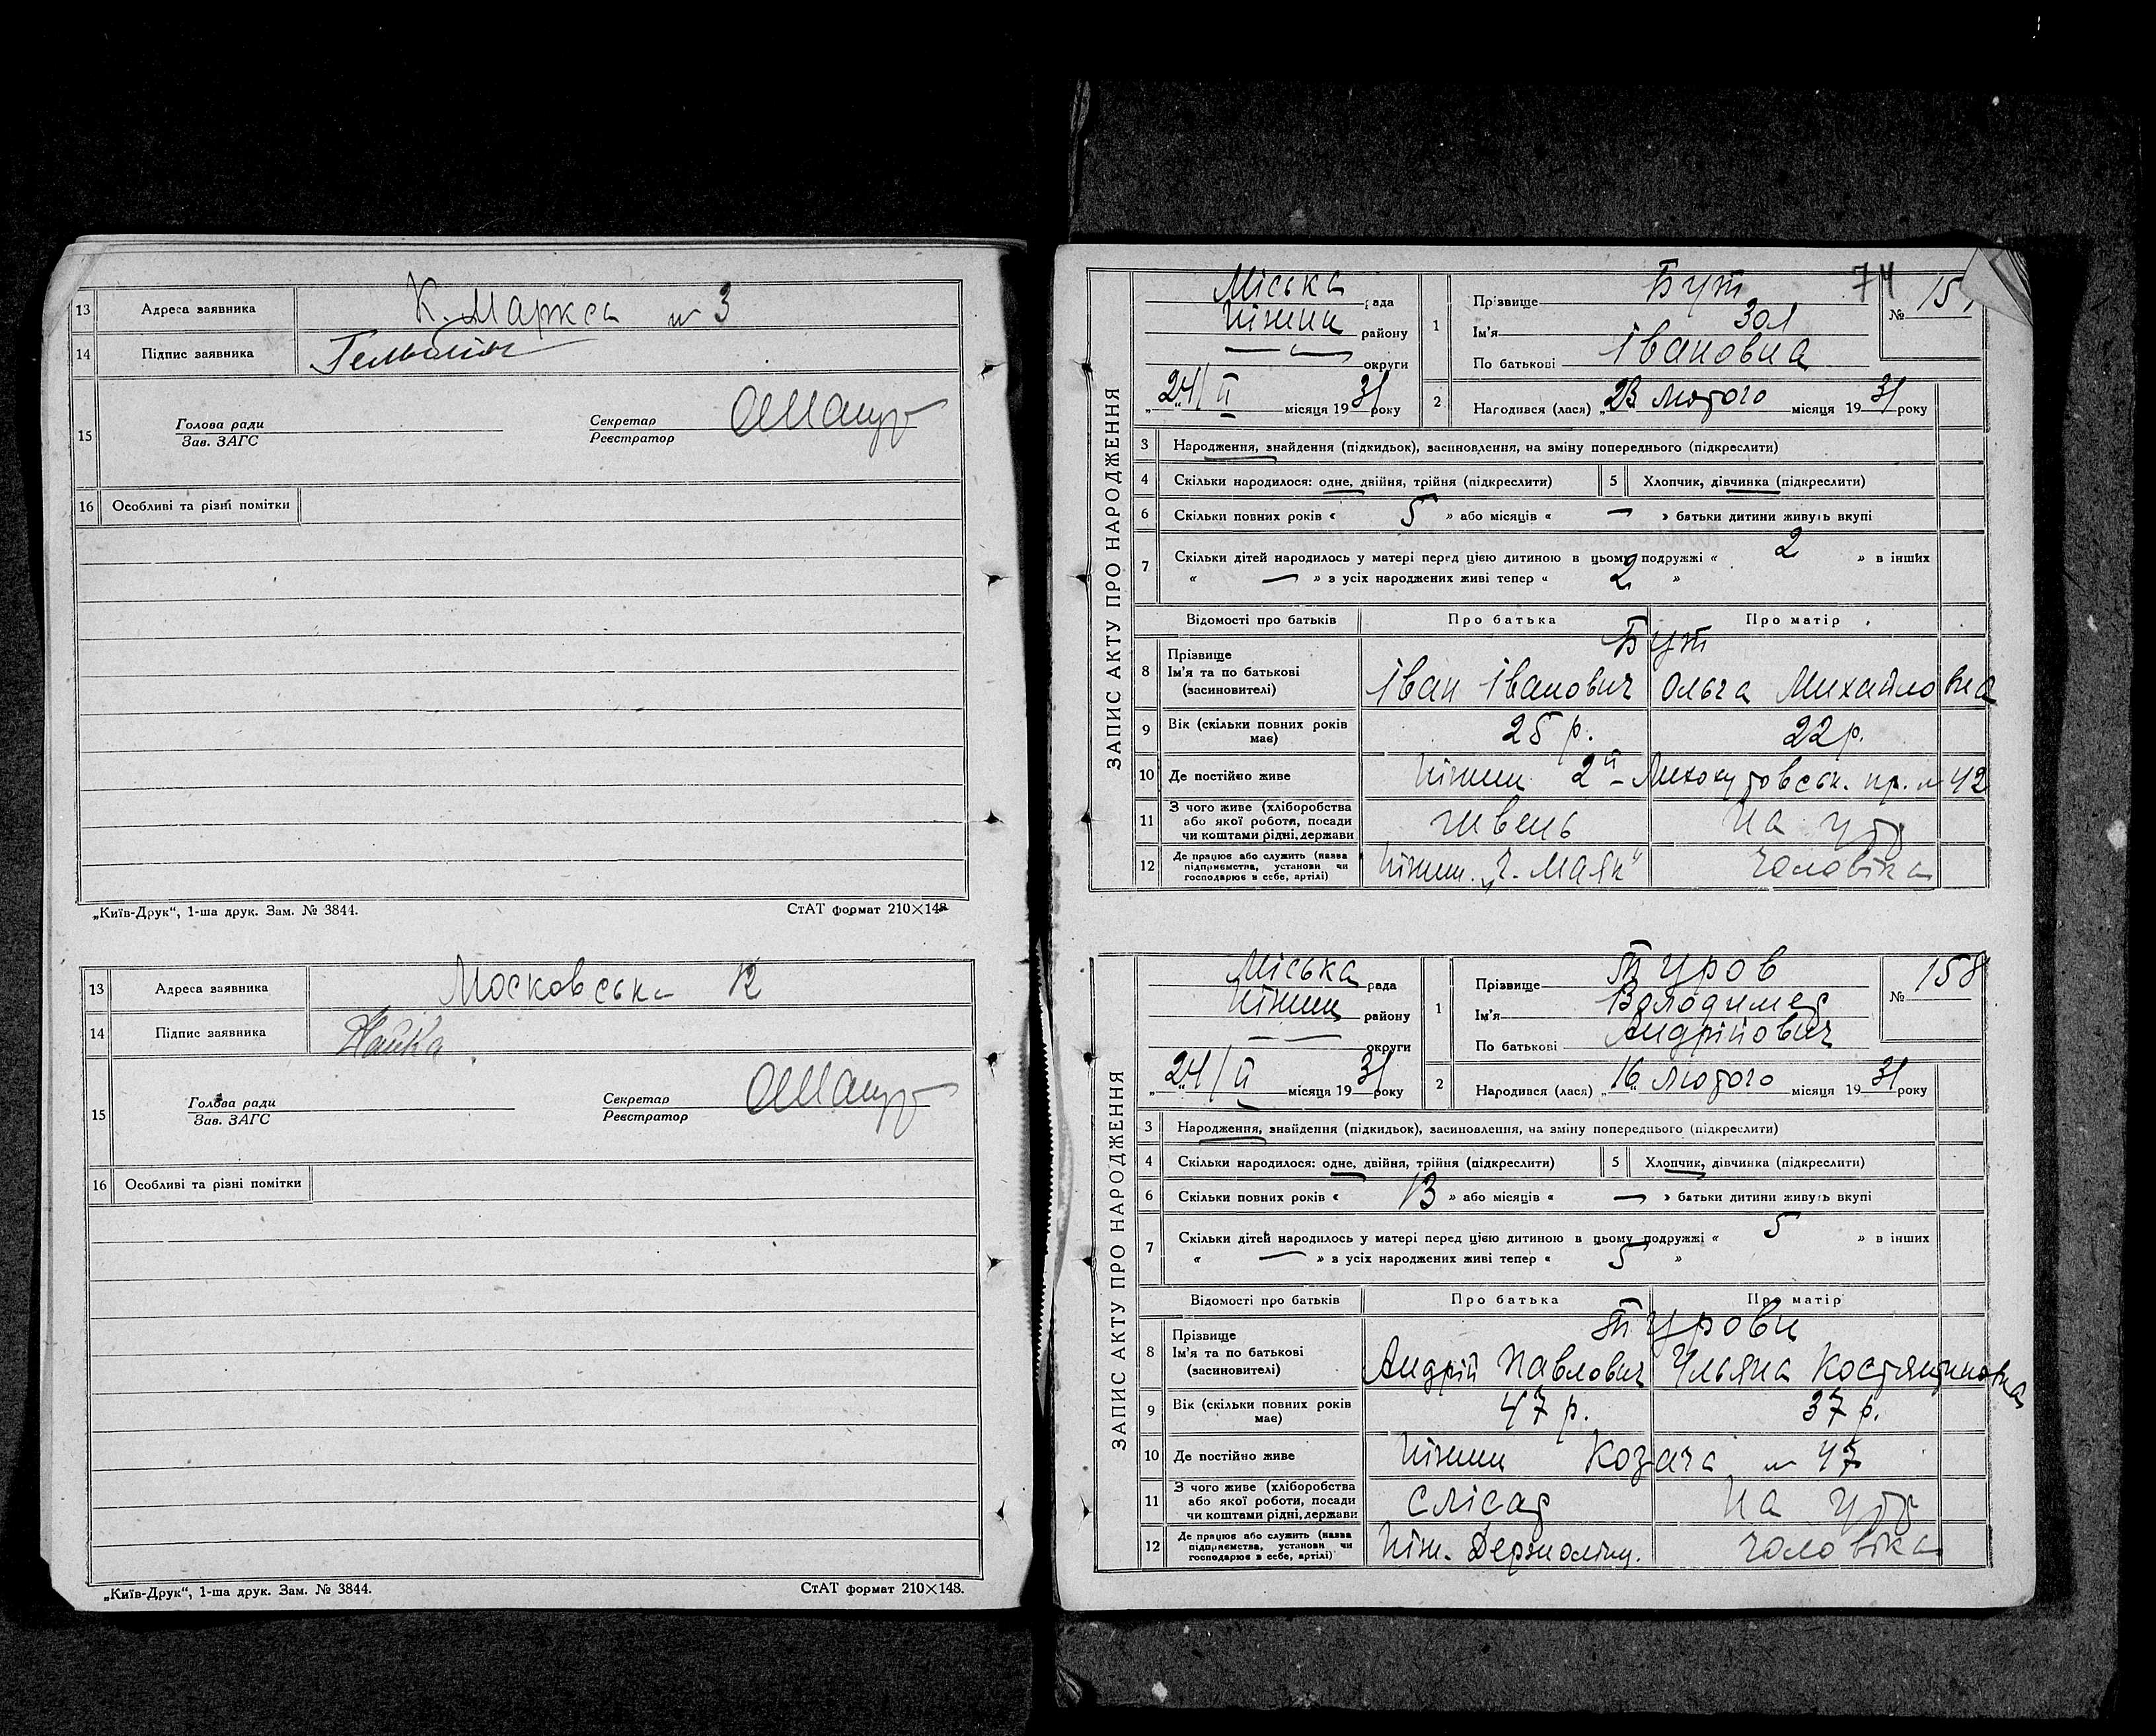 13 Адреса заявника К. Маркса № 3
14 Підпис заявника
15 Голова ради
Зав. ЗАГС
Секретар
Реєстратор
16 Особливі та різні помітки
„Київ-Друк“, 1-ша друк. Зам. № 3844. СтАТ формат 210×148
13 Адреса заявника Московська 12
14 Підпис заявника
15 Голова ради
Зав. ЗАГС
Секретар
Реєстратор
16 Особливі та різні помітки
„Київ-Друк“, 1-ша друк. Зам. № 3844. СтАТ формат 210×148.
74
ЗАПИС АКТУ ПРО НАРОДЖЕННЯ
Міська рада
Ніжин району
округи
„24/II місяця 1931 року
1 Прізвище Бут
Ім'я Зоя
По батькові Івановна
№ 15
2 Народився (лася) „23 лютого місяця 1931 року
3 Народження, знайдення (підкидьок), засиновлення, на зміну попереднього (підкреслити)
4 Скільки народилося: одне, двійня, трійня (підкреслити) 5 Хлопчик, дівчинка (підкреслити)
6 Скільки повних років « 5 » або місяців « — » батьки дитини живуть вкупі
7 Скільки дітей народилось у матері перед цією дитиною в цьому подружжі « 2 » в інших
« — » з усіх народжених живі тепер « 2 »
Відомості про батьків Про батька Про матір
Бут
8 Прізвище
Ім'я та по батькові
(засиновителі)
Іван Іванович Ольга Михайловна
9 Вік (скільки повних років
має)
25 р. 22 р.
10 Де постійно живе Ніжин 2й - пр. № 42
11 З чого живе (хліборобства
або якої роботи, посади
чи коштами рідні, держави
швець На утр
12 Де працює або служить (назва
підприємства, установи чи
господарює в себе, артілі)
Ніжин. „Ч. Маяк“ чоловіка
ЗАПИС АКТУ ПРО НАРОДЖЕННЯ
Міська рада
Ніжин району
округи
„24/II місяця 1931 року
1 Прізвище Туров
Ім'я Володимер
По батькові Андрійович
№ 158
2 Народився (лася) „16 лютого місяця 1931 року
3 Народження, знайдення (підкидьок), засиновлення, на зміну попереднього (підкреслити)
4 Скільки народилося: одне, двійня, трійня (підкреслити) 5 Хлопчик, дівчинка (підкреслити)
6 Скільки повних років « 13 » або місяців « — » батьки дитини живуть вкупі
7 Скільки дітей народилось у матері перед цією дитиною в цьому подружжі « 5 » в інших
« — » з усіх народжених живі тепер « 5 »
Відомості про батьків Про батька Про матір
Турови
8 Прізвище
Ім'я та по батькові
(засиновителі)
Андрій Павлович Ульяна Костянтиновна
9 Вік (скільки повних років
має)
47 р. 37 р.
10 Де постійно живе Ніжин Козача № 47
11 З чого живе (хліборобства
або якої роботи, посади
чи коштами рідні, держави
слісар На утр
12 Де працює або служить (назва
підприємства, установи чи
господарює в себе, артілі)
Ніж. чоловіка